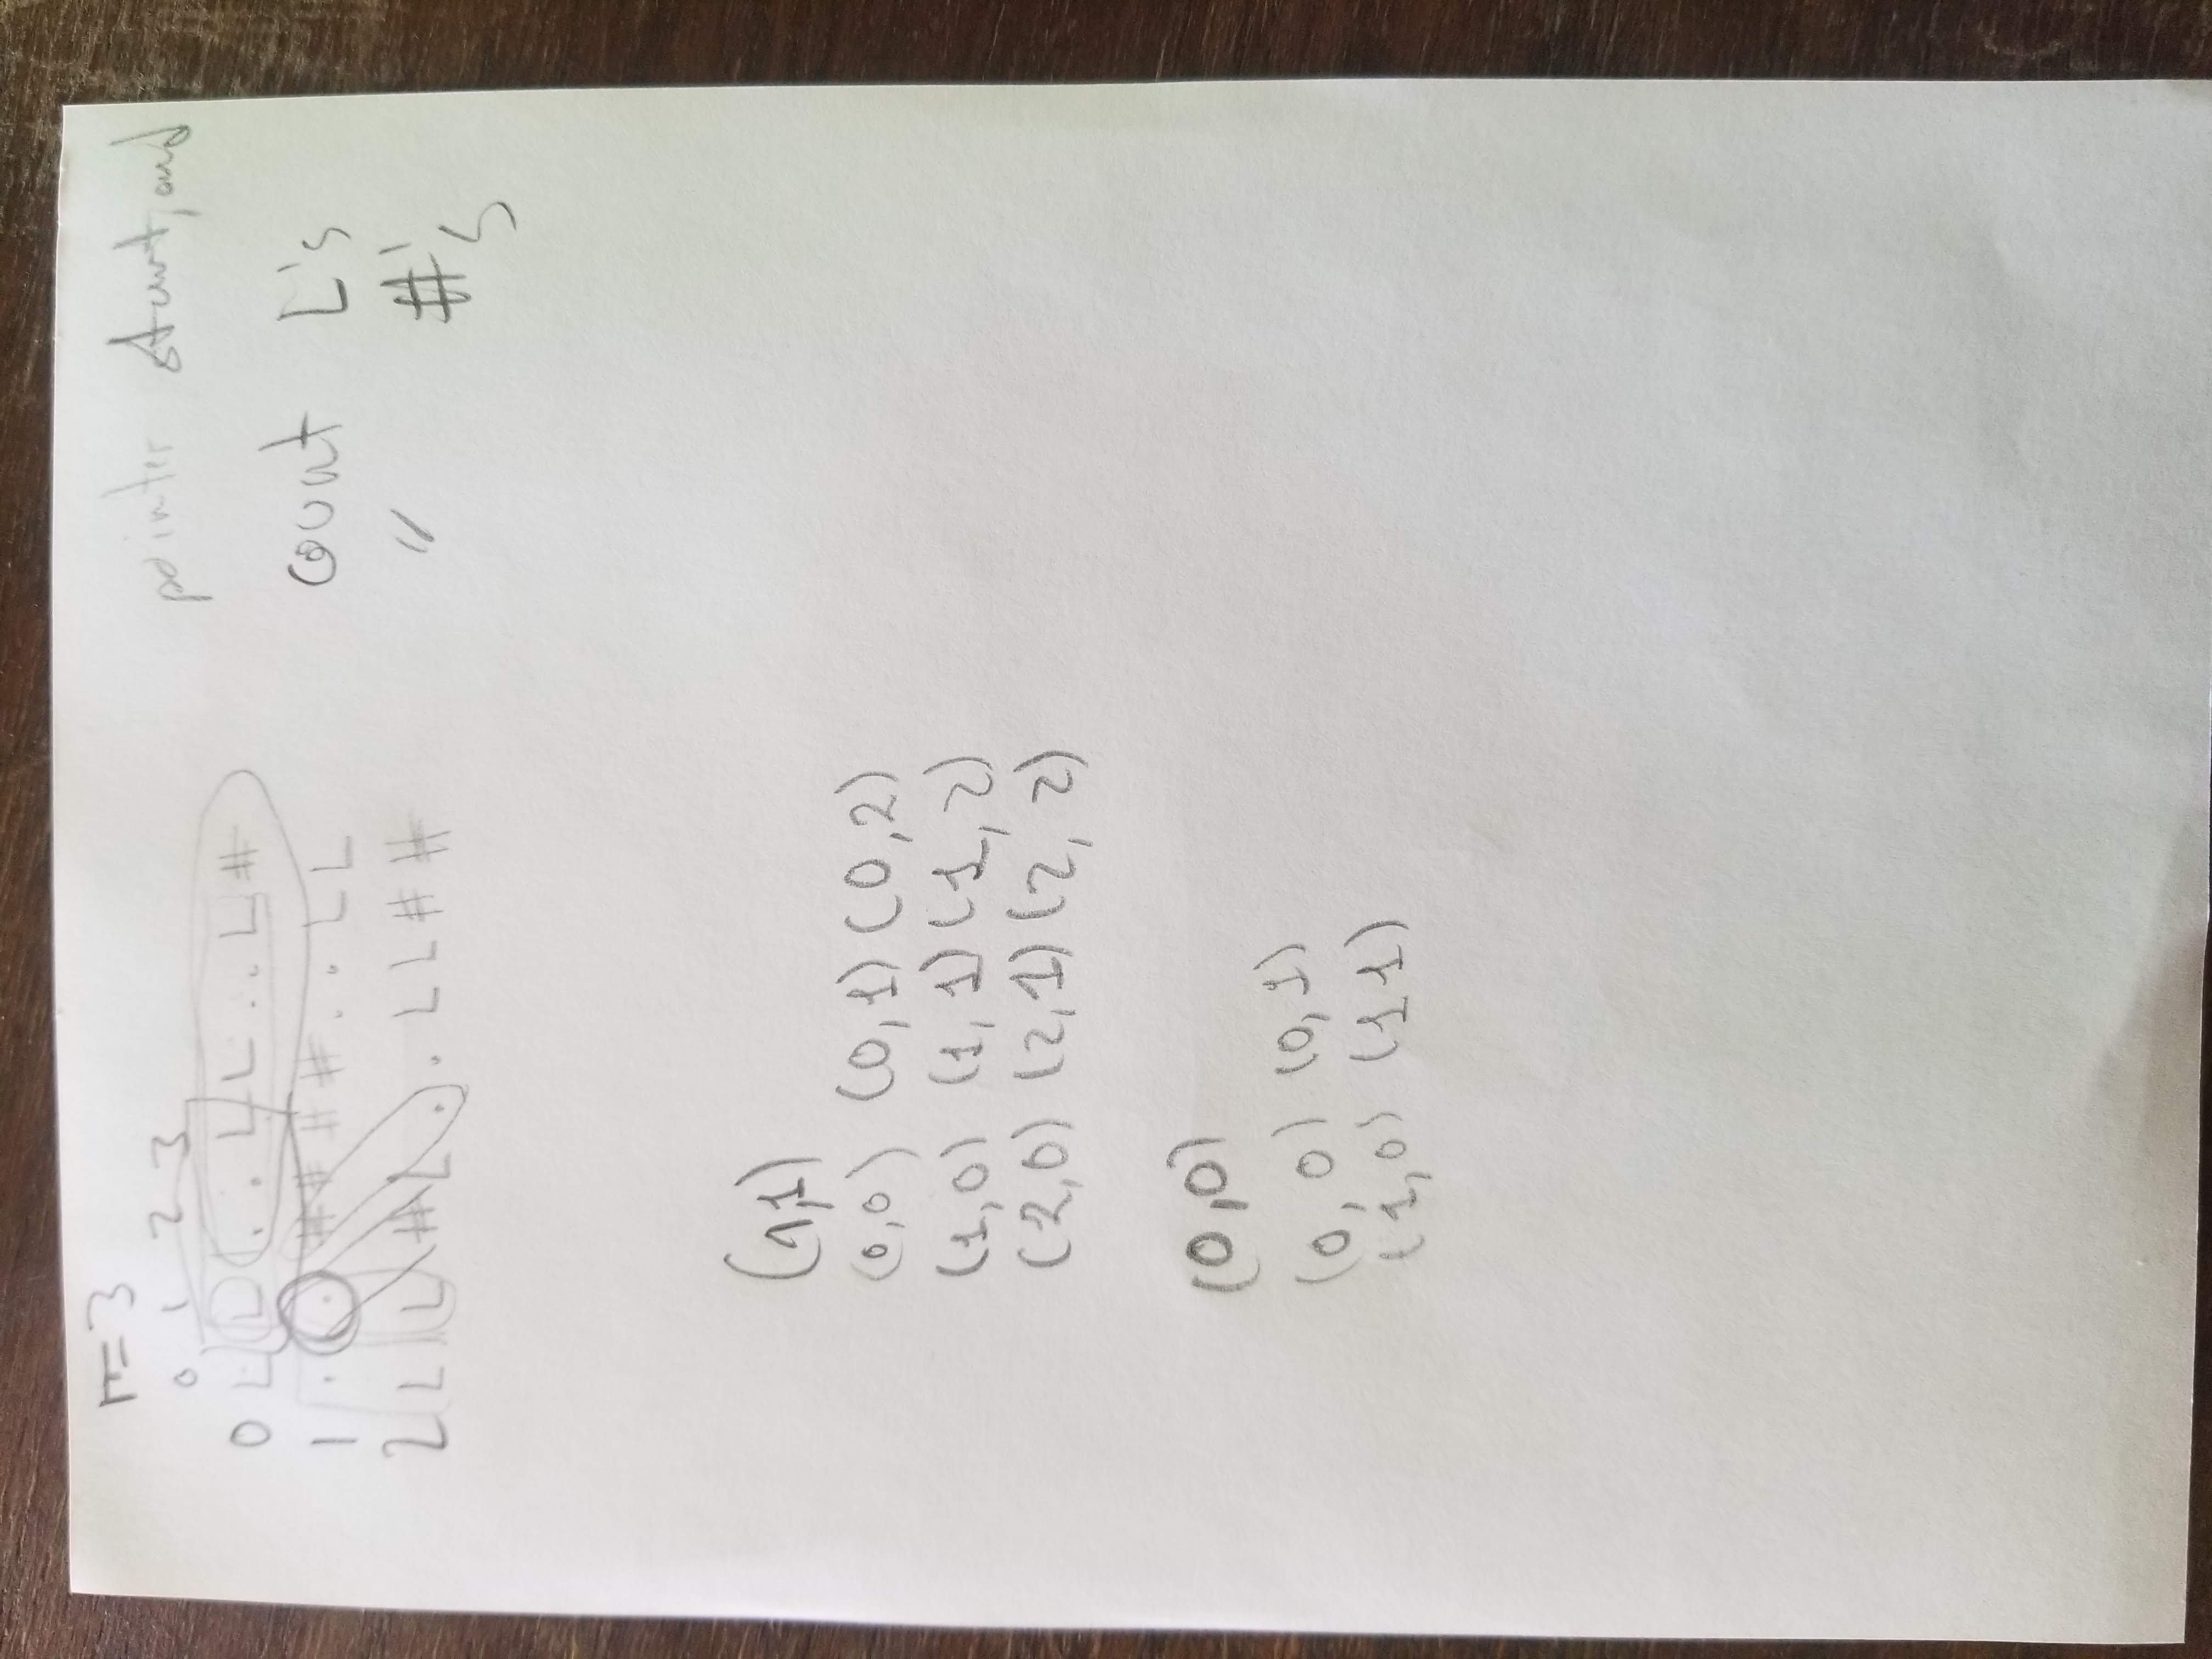 r=3
0 1 2 3
0 L L . . L L . . L #
1 . . # # # # . . L L
2 L L # L . . L L # #
pointer start, end
count L's
" #'s
(1,1)
(0,0) (0,1) (0,2)
(1,0) (1,1) (1,2)
(2,0) (2,1) (2,2)
(0,0)
(0,0) (0,1)
(1,0) (1 1)